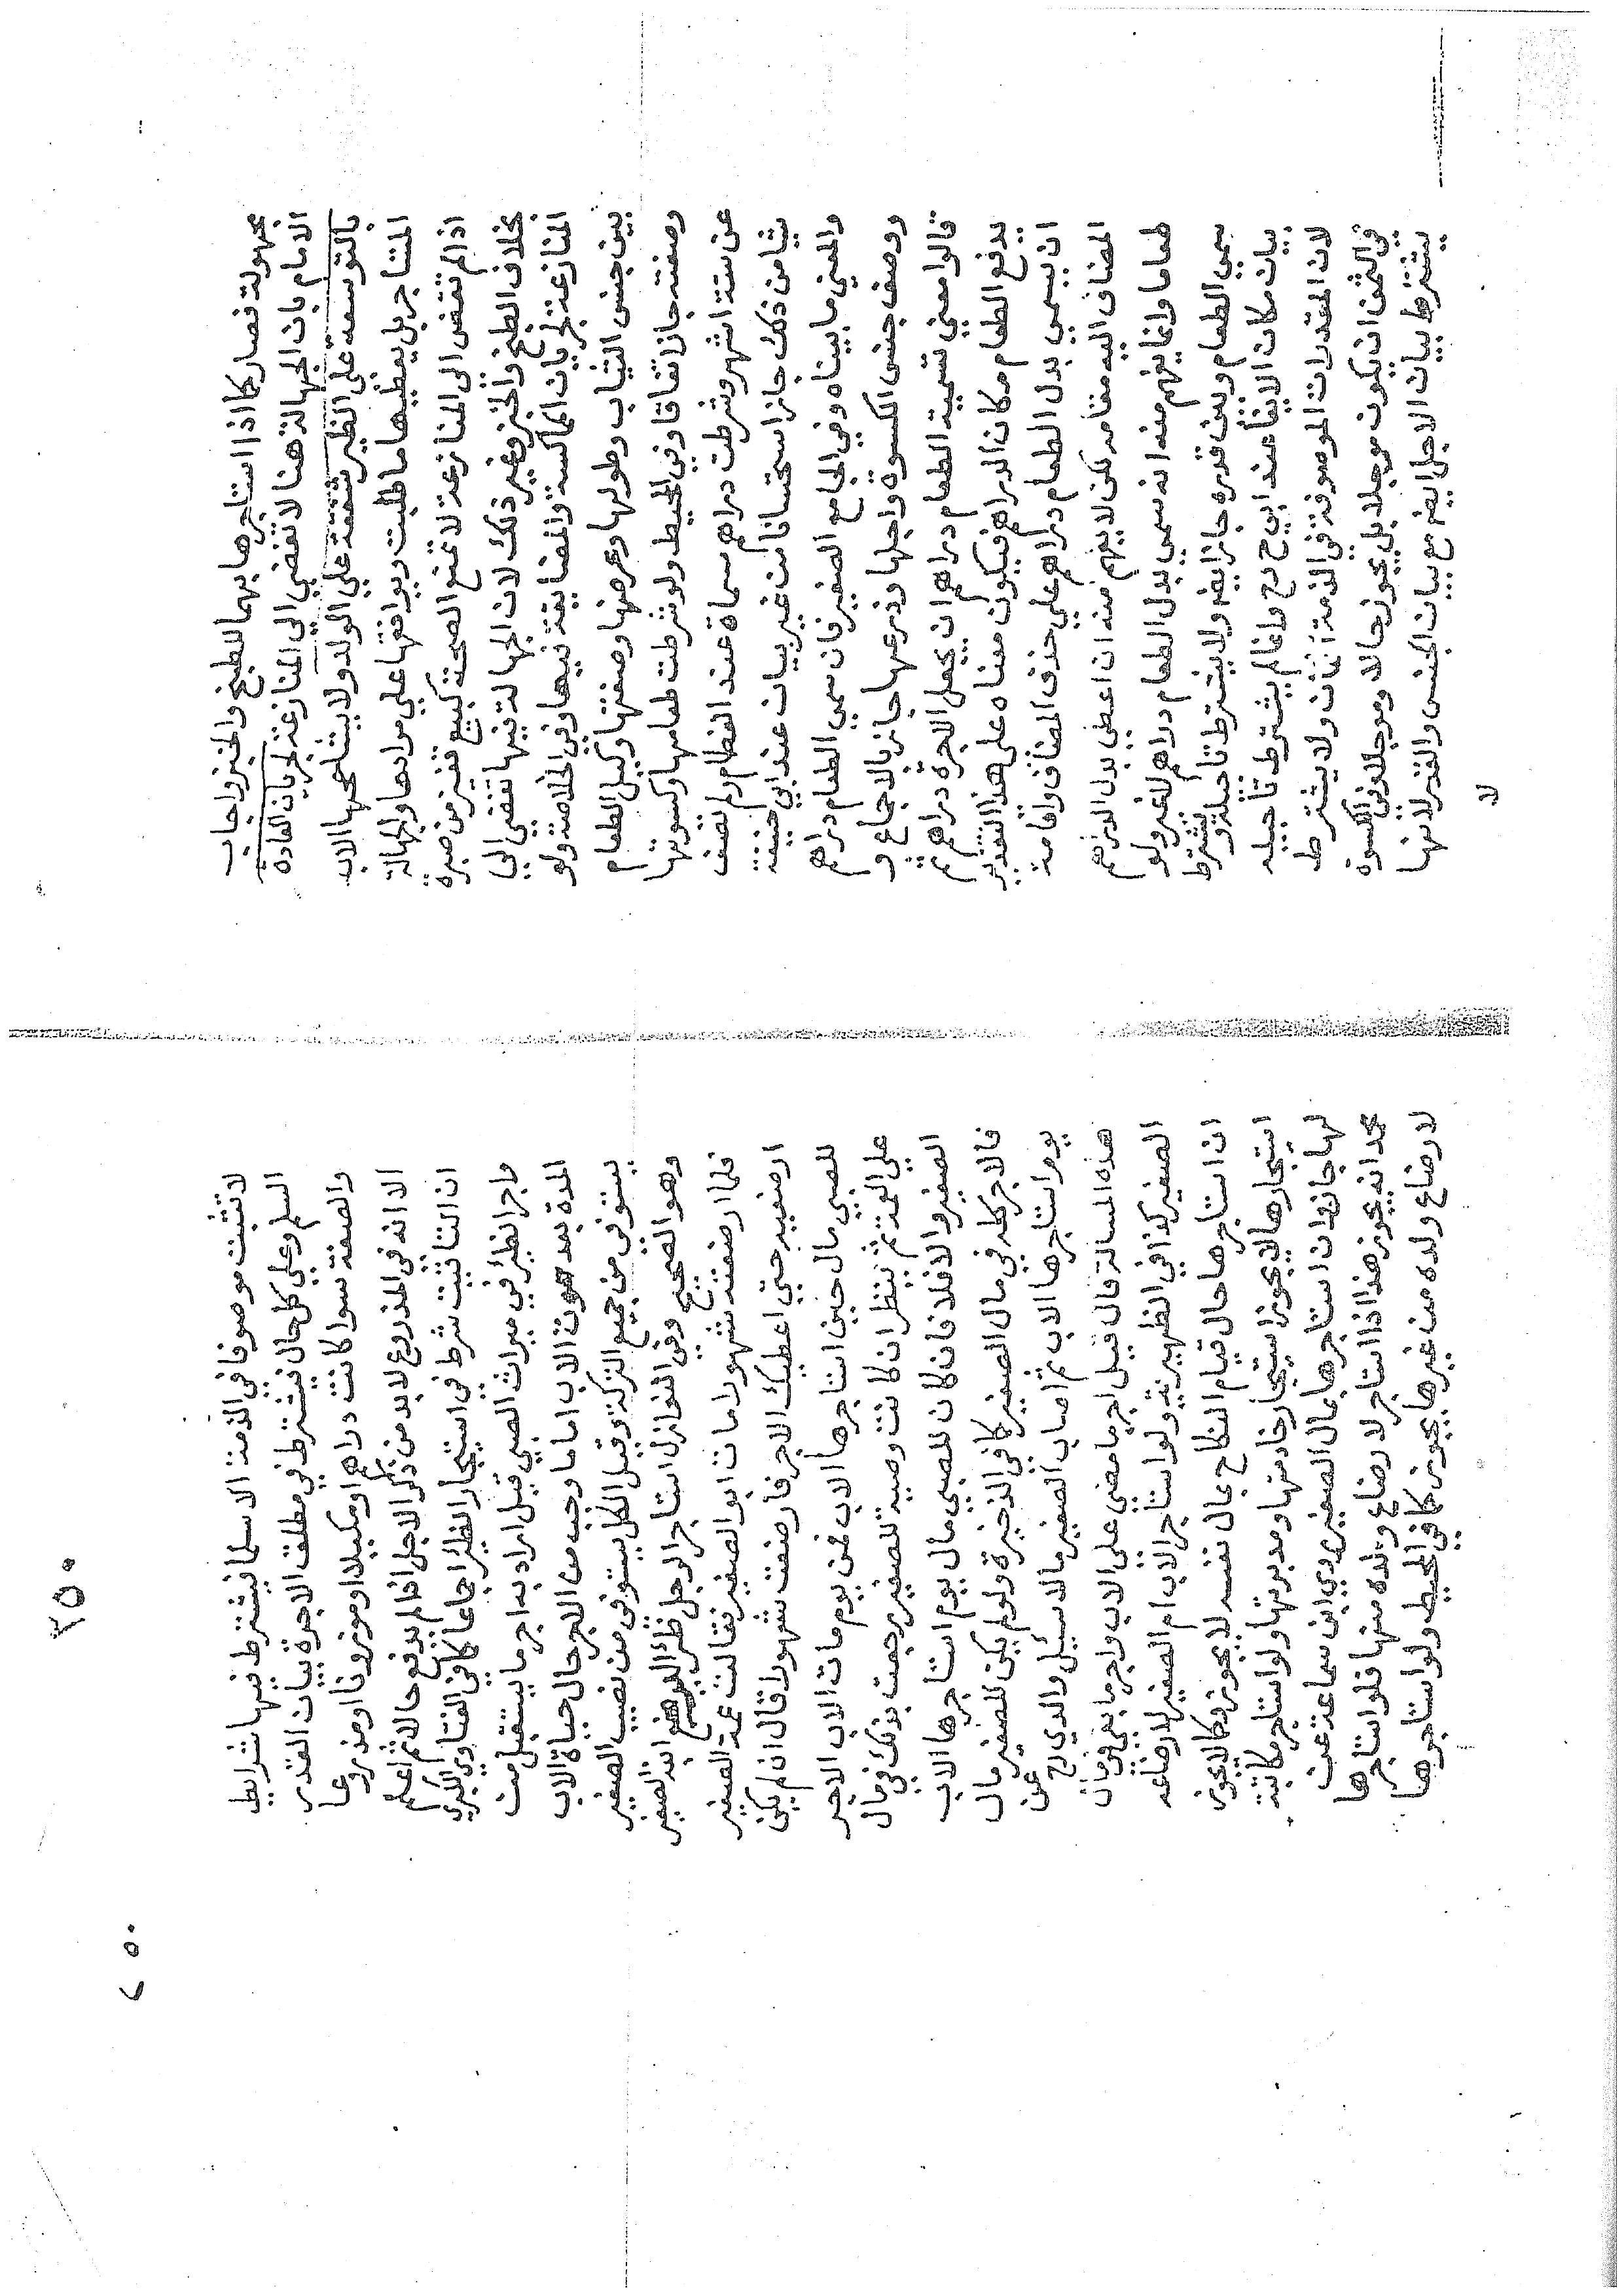 مجهولة فصار كما اذا استاجرها بهما للطبخ والخبز واجاب
الامام بان الجهالة هنا لا تفضي الى المنازعة لجريان العادة
بالتوسعة على الظير شفقة علي الولد ولا يشاححها الاب
المستاجر بل يعطيها ما طلبت ويوافقها علي مرادها والجهالة
اذا لم تفض الى المنازعة لا تمنع الصحة كبيع قفيز من صبرة
بخلاف الطبخ والخبز وغير ذلك لان الجهالة فيها تفضي الي
المنازعة لجريان المماكسة والمضايقة فيها وفي الخلاصة ولو
بين جنس الثياب وطولها وعرضها وصفتها وكيل الطعام
وصفته جاز اتفاقا وفي المحيط ولو شرطت طعامها وكسوتها
عن ستة اشهر وشرطت دراهم مسماة عند الفطام ولم تصف
شيا من ذلك جاز استحسانا من غير بيان عند ابي حنيفة
والمعني ما بيناه وفي الجامع الصغير فان سمي الطعام دراهم
ووصف جنس الكسوة واجلها وذرعها جاز بالاجماع و
قالوا معني تسمية الطعام دراهم ان يجعل الاجرة دراهم ثم
يدفع الطعام مكان الدراهم فيكون معناه على هذا التقدير
ان يسمي بدل الطعام دراهم علي حذف المضاف واقامة
المضاف اليه مقامه لكن لا يفهم منه ان اعطي بدل الدرهم
طعاما وانما يفهم منه انه سمي بدل الطعام دراهم لا غير ولو
سمي الطعام وبين قدره جاز ايضا ولا يشترط تاجيله ويشترط
بيان مكان الايفا عند ابي ح رح وانما لم يشترط تاجيله
لان المقدرات الموصوفة في الذمة اثمان ولا يشترط
في الثمن ان يكون موجلا بل يجوز حالا وموجلا وفي الكسوة
يشترط بيان الاجل ايضا مع بيان الجنس والقدر لانها
لا
٢٥٠
٢٥٠
لا تثبت موصوفا في الذمة الا سلما فيشترط فيها شرايط
السلم وعلي كل حال فيشترط في مطلق الاجرة بيان القدر
والصفة سوا كانت دراهم او مكيلا او موزونا او مذروعا
الا انه في المذروع لا بد من ذكر الاجل اذا لم يدفع حالا ثم اعلم
ان التاقيت شرط في استيجار الظئر اجماعا كما في الفتاوي الكبري
واجر الظئر في ميراث الصبي قيل اراد به اجر ما يستقبل من
المدة بعد موت الاب اما ما وجب من الاجر حال حياة الاب
يستوفى من جميع التركة وقيل الكل يستوفى من نصيب الصغير
وهو الصحيح وفي النوازل استاجر الرجل ظئرا لترضع ابنه الصغير
فلما ارضعته شهورا مات ابو الصغير فقالت عمة الصغير
ارضعيه حتي اعطيك الاجر فارضعت شهورا قال ان لم يكن
للصبي مال حين استاجرها الاب فمن يوم مات الاب الاجر
علي العمة ثم ينظر ان كانت وصية للصغير رجعت بذلك في مال
الصغير والا فلا فان كان للصبي مال يوم استاجرها الاب
فالاجر كله في مال الصغير كما في الذخيرة ولو لم يكن للصغير مال
يوم استاجرها الاب ثم اصاب الصغير مالا سئل والدي رح عن
هذه المسالة قال قيل اجر ما مضي على الاب واجر ما بقي في مال
الصغير كذا في الظهيرية ولو استاجر الاب ام الصغير لارضاعه
ان استاجرها حال قيام النكاح بمال نفسه لا يجوز وكما لا يجوز
استيجارها لا يجوز استيجار خادمتها ومدبرتها ولو استاجر مكاتبة
لها جاز وان استاجرها بمال الصغير روي ابن سماعة عن
محمد انه يجوز هذا اذا استاجر لارضاع ولده منها فلو استاجرها
لارضاع ولده من غيرها يجوز كما في المحيط ولو استاجرها